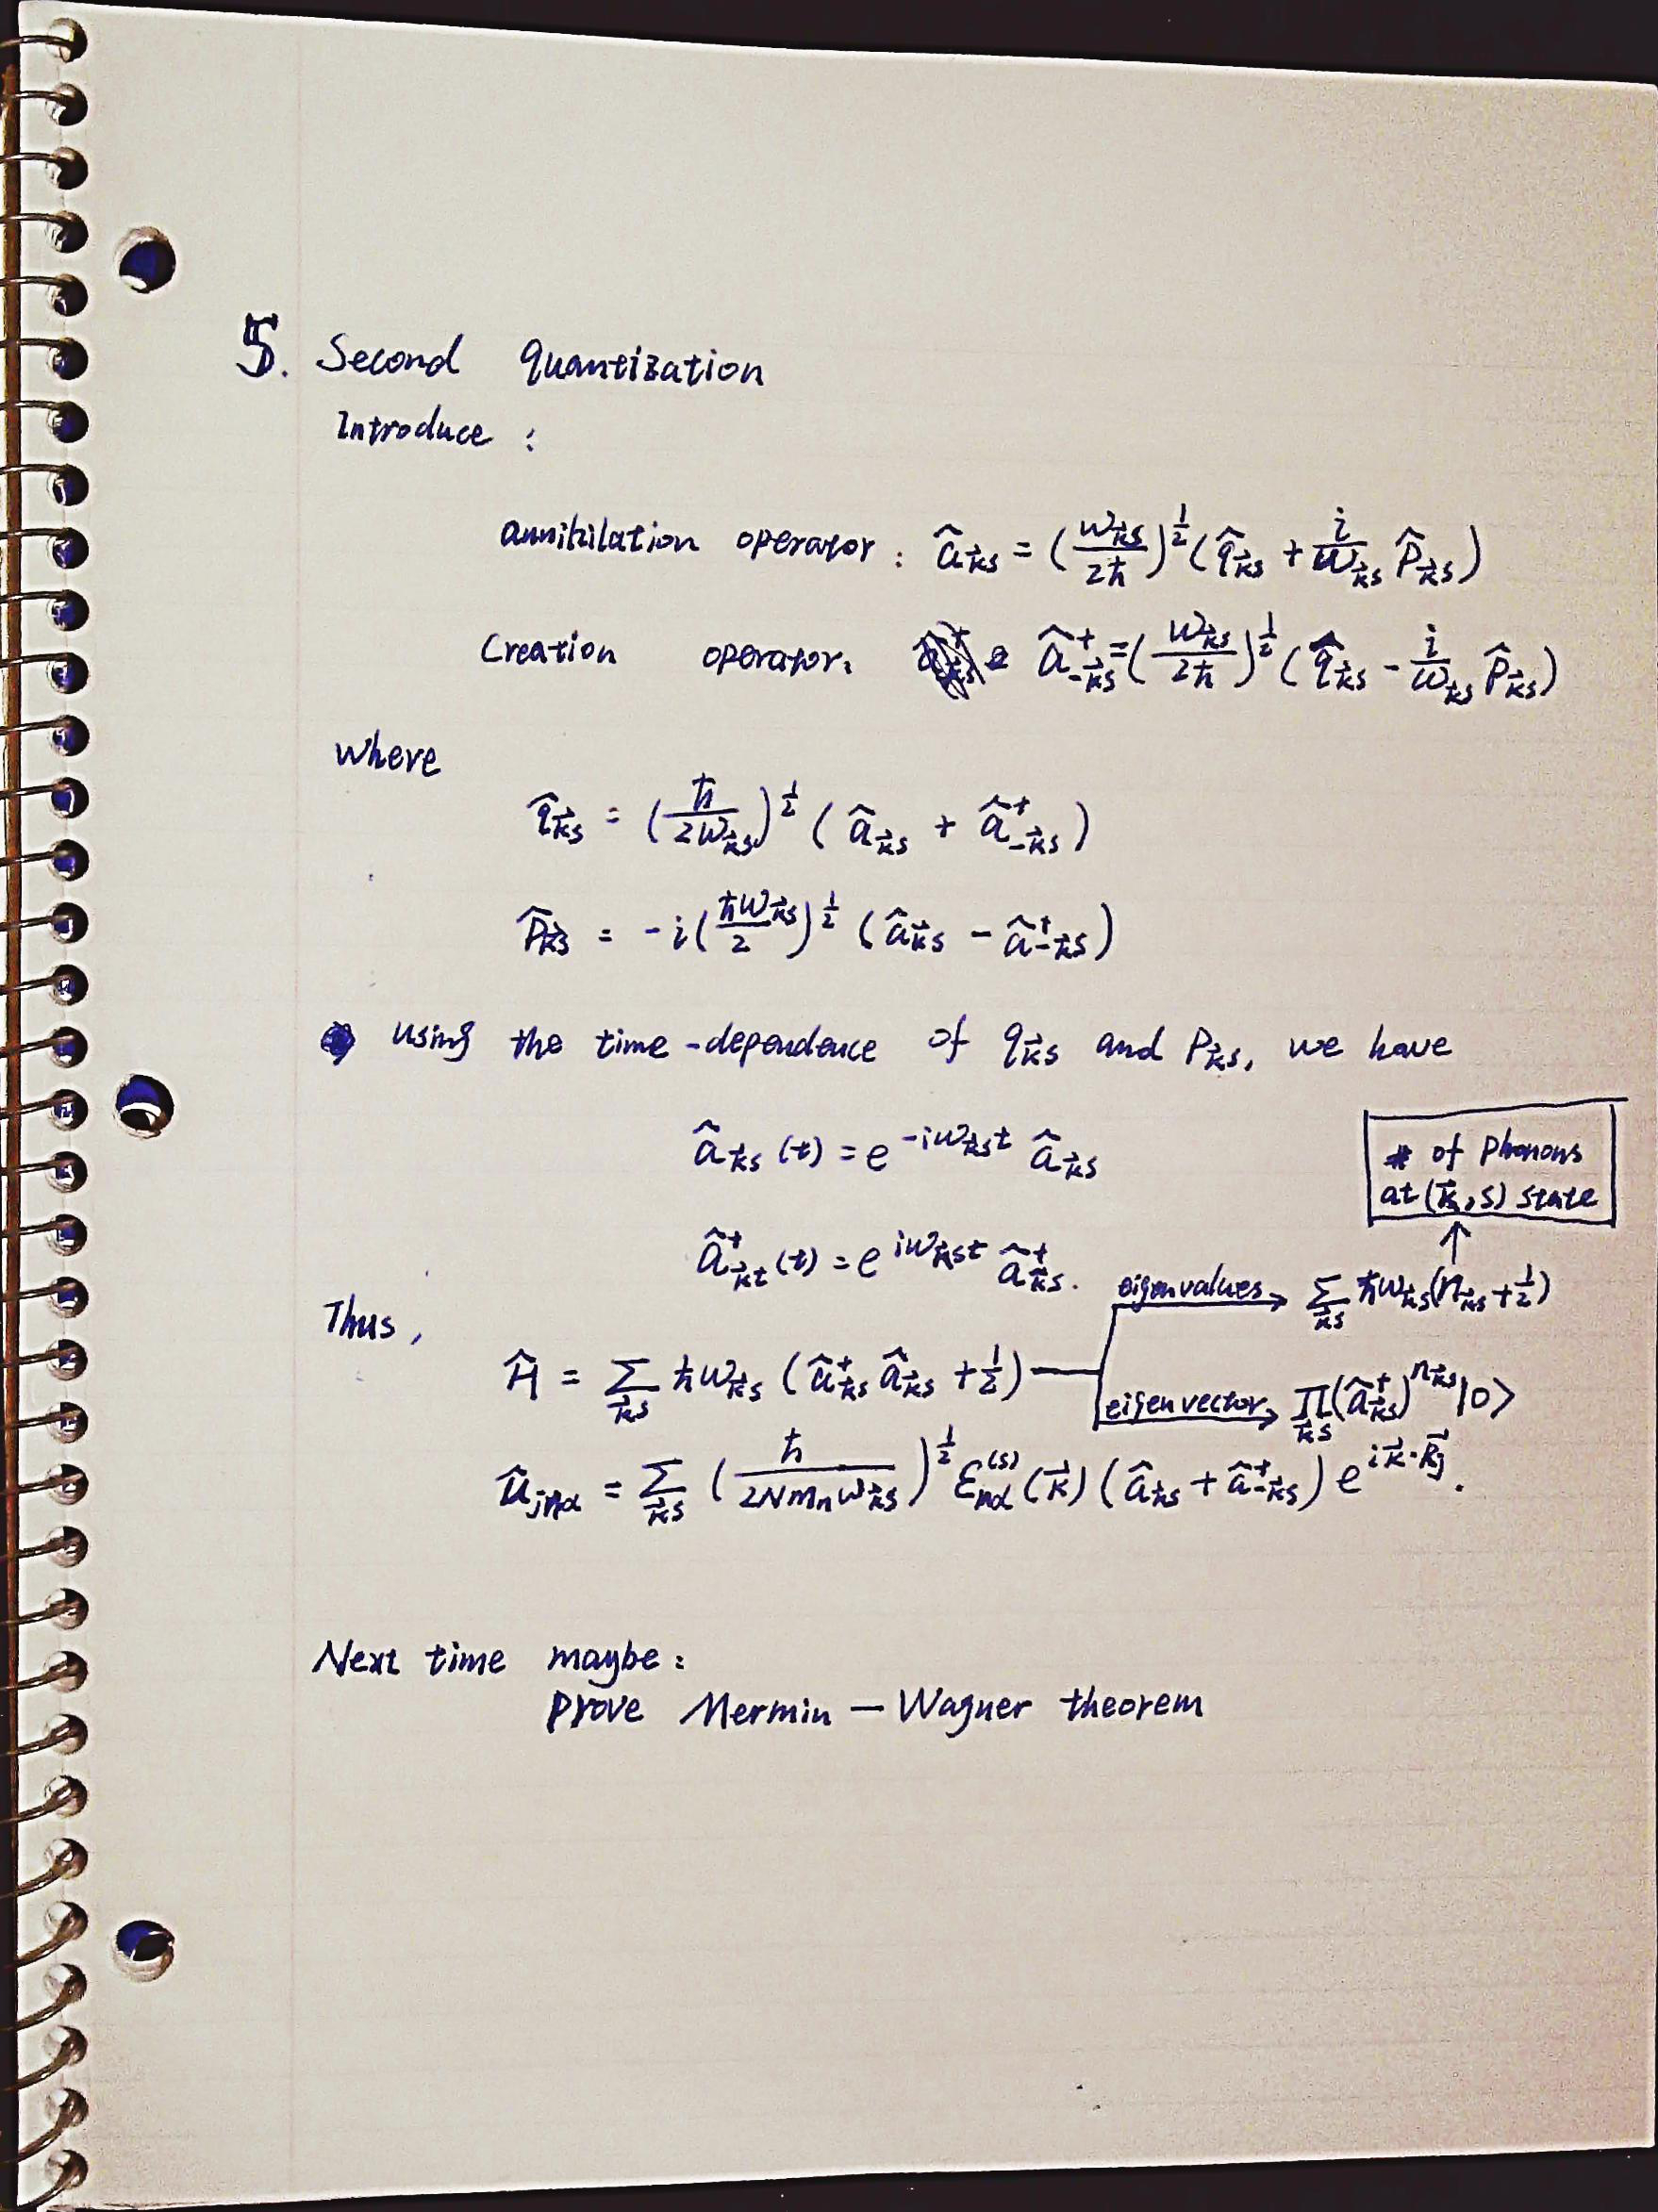 5. Second quantization
Introduce :
annihilation operator : â_{k⃗s} = (ω_{k⃗s}/2ħ)^{1/2} (q̂_{k⃗s} + i/ω_{k⃗s} p̂_{k⃗s})
Creation operator: â⁺_{-k⃗s} = (ω_{k⃗s}/2ħ)^{1/2} (q̂_{k⃗s} - i/ω_{k⃗s} p̂_{k⃗s})
where
q̂_{k⃗s} = (ħ/2ω_{k⃗s})^{1/2} (â_{k⃗s} + â⁺_{-k⃗s})
p̂_{k⃗s} = -i(ħω_{k⃗s}/2)^{1/2} (â_{k⃗s} - â⁺_{-k⃗s})
using the time-dependence of q_{k⃗s} and P_{k⃗s}, we have
â_{k⃗s}(t) = e^{-iω_{k⃗s}t} â_{k⃗s}
# of Phonons
at (k⃗, s) state
â⁺_{k⃗t}(t) = e^{iω_{k⃗s}t} â⁺_{k⃗s}.
eigenvalues → Σ_{k⃗s} ħω_{k⃗s}(n_{k⃗s} + 1/2)
Thus,
Ĥ = Σ_{k⃗s} ħω_{k⃗s} (â⁺_{k⃗s} â_{k⃗s} + 1/2)
eigenvector → Π_{k⃗s} (â⁺_{k⃗s})^{n_{k⃗s}} |0>
û_{jnα} = Σ_{k⃗s} (ħ/2Nm_nω_{k⃗s})^{1/2} ε_{nα}^{(s)}(k⃗) (â_{k⃗s} + â⁺_{-k⃗s}) e^{ik⃗·R⃗_j}.
Next time maybe:
Prove Mermin - Wagner theorem